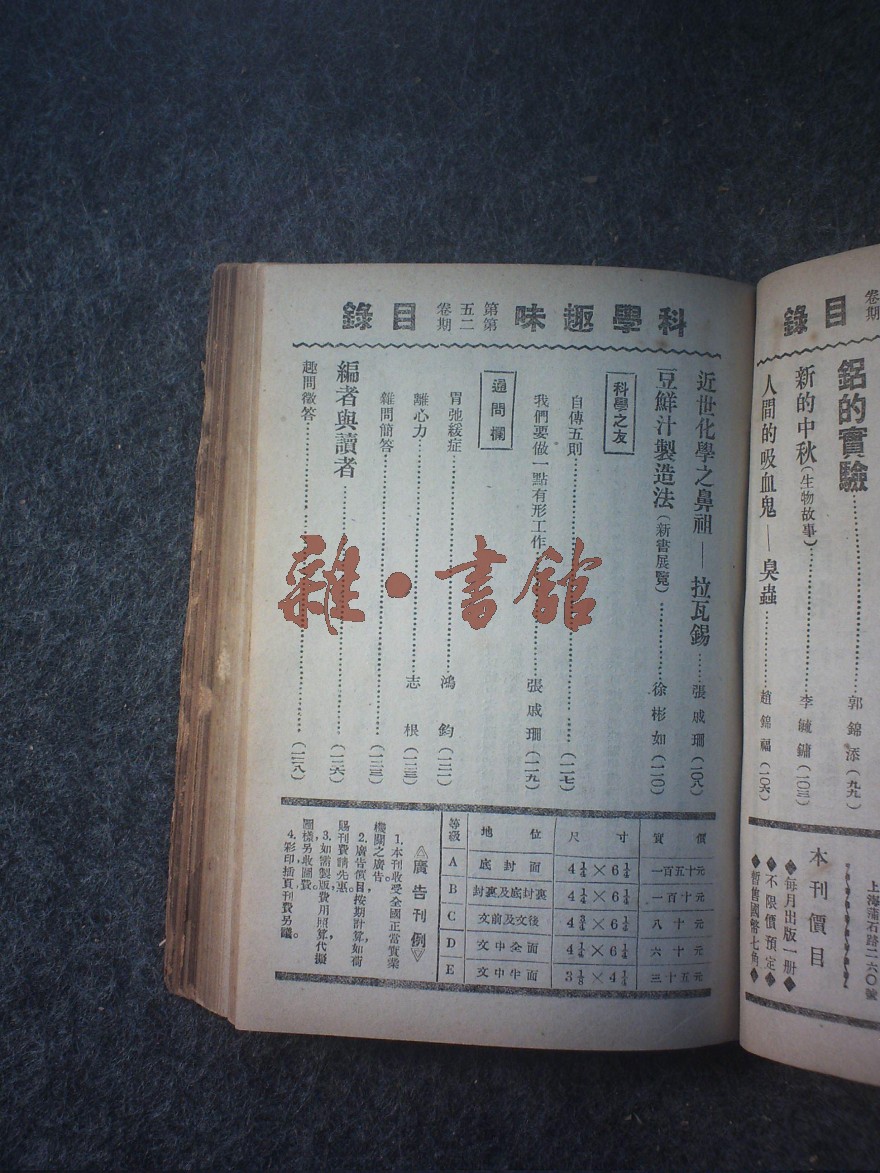 目錄
卷期
鋁的實驗……郭錦添（九九）
新的中秋（生物故事）……李毓鏞（一〇三）
人間的吸血鬼——臭蟲……趙錦福（一〇六）
上海蒲石路二六〇號
本刊價目
◆每月出版一册◆
◆不限價預定◆
◆暫售國幣七角◆
科學趣味 第五卷 第二期 目錄
近世化學之鼻祖——拉瓦錫……張戚珊（一〇八）
豆鮮汁製造法（新書展覽）……徐彬如（一一〇）
科學之友
自傳五則……（一一七）
我們要做一點有形工作……張戚珊（一一九）
過問欄
胃弛緩症……鴻鈞（一二一）
離心力……志根（一二三）
雜問簡答……（一二三）
編者與讀者……（一二六）
趣問徵答……（一二八）
等級 地位 尺寸 實價
A 底封面 4¼×6¼ 一百五十元
B 封裏及底封裏 4¼×6¼ 一百十元
C 文前及文後 4¼×6¼ 八十元
D 文中全面 4¼×6¼ 六十元
E 文中半面 3⅛×4¼ 三十五元
廣告刊例
1. 本刊收受全國正當實業
樓關之廣告。
2. 廣告價目按期計算，如荷
賜刊費請先惠。
3. 如需製版費用照算，代擬
圖樣另收圖費。
4. 彩印插頁刊費另議。
雜·書館